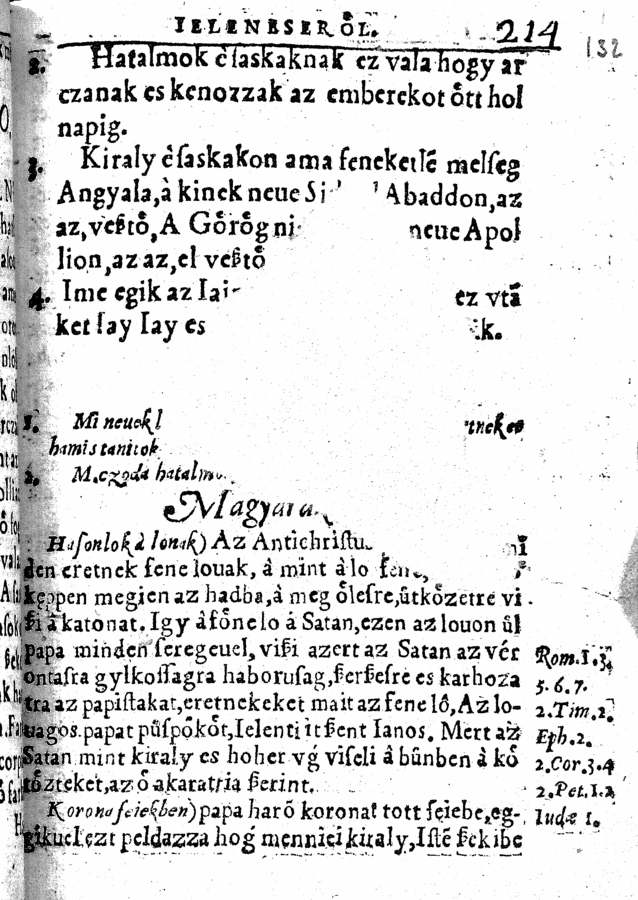 IELENESERŐL.
214
132
2. Hatalmok e̓ſaskaknak ez vala hogy ar
czanak es kenozzak az emberekot o̊tt hol
napig.
3. Kiraly e̓ſaskakon ama feneketlē melſeg
Angyala, à kinek neue Abaddon, az
az, veßto̊, A Go̊ro̊g neue Apol
lion, az az, el veßto̊
4. Ime egik az Iai ez vtā
ket ſay Iay es
1. Mi neuek
hamis tanitok
2. hatalm
Magyara
Haſonlok à lonak) Az Antichriſtu
den eretnek fene louak, à mint à lo
keppen megien az hadba, à meg o̊leſre, ůtko̊zetre vi
ßi à katonat. Igy à fo̊ne lo à Satan, ezen az louon ůl
papa minden ſeregeuel, vißi azert az Satan az vér
ontaſra gylkoſſagra haboruſag, ßerßeſre es karhoza
tra az papiſtakat, eretnekeket mait az fene lő, Az lo-
uagos papat půſpo̊ko̊t, Ielenti itßent Ianos. Mert az
Satan mint kiraly es hoher vǵ viſeli à bůnben à ko̊
to̊zteket, az o̊ akaratria ßerint.
Korona feiekben) papa harō koronat tott feiebe, eg-
gikuel ezt peldazza hoǵ menniei kiraly, Iſtē ßekibe
Rom. 1. 3.
5. 6. 7.
2. Tim. 2.
Eph. 2.
2. Cor. 3. 4
2. Pet. 1. 2
Iudæ 1.